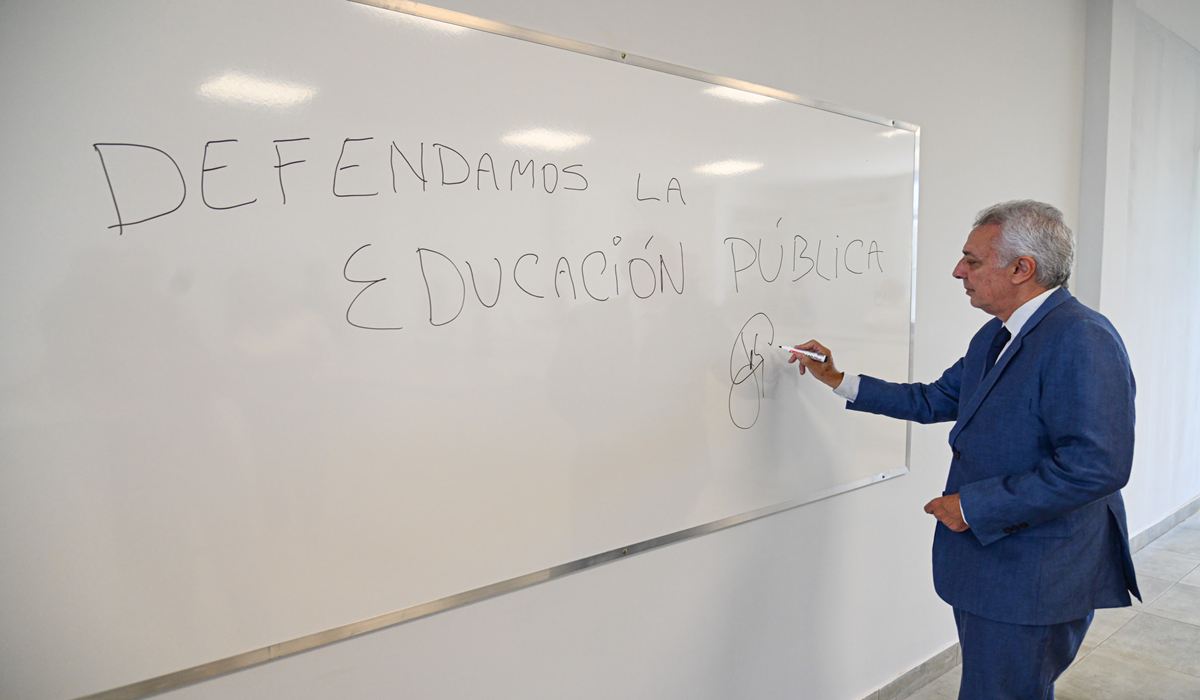 DEFENDAMOS LA
EDUCACIÓN PÚBLICA